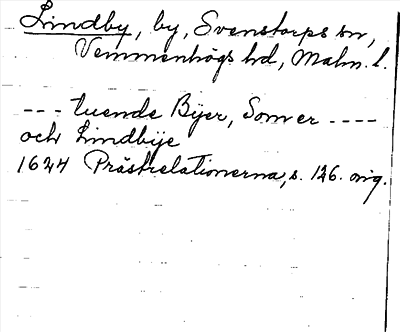 Lindby, by, Svenstorps sn,
Vemmenhögs hd, Malm. l.
--- tuende Byer, Som er ----
och Lindbye
1624 Prästrelationerna, s. 126. orig.